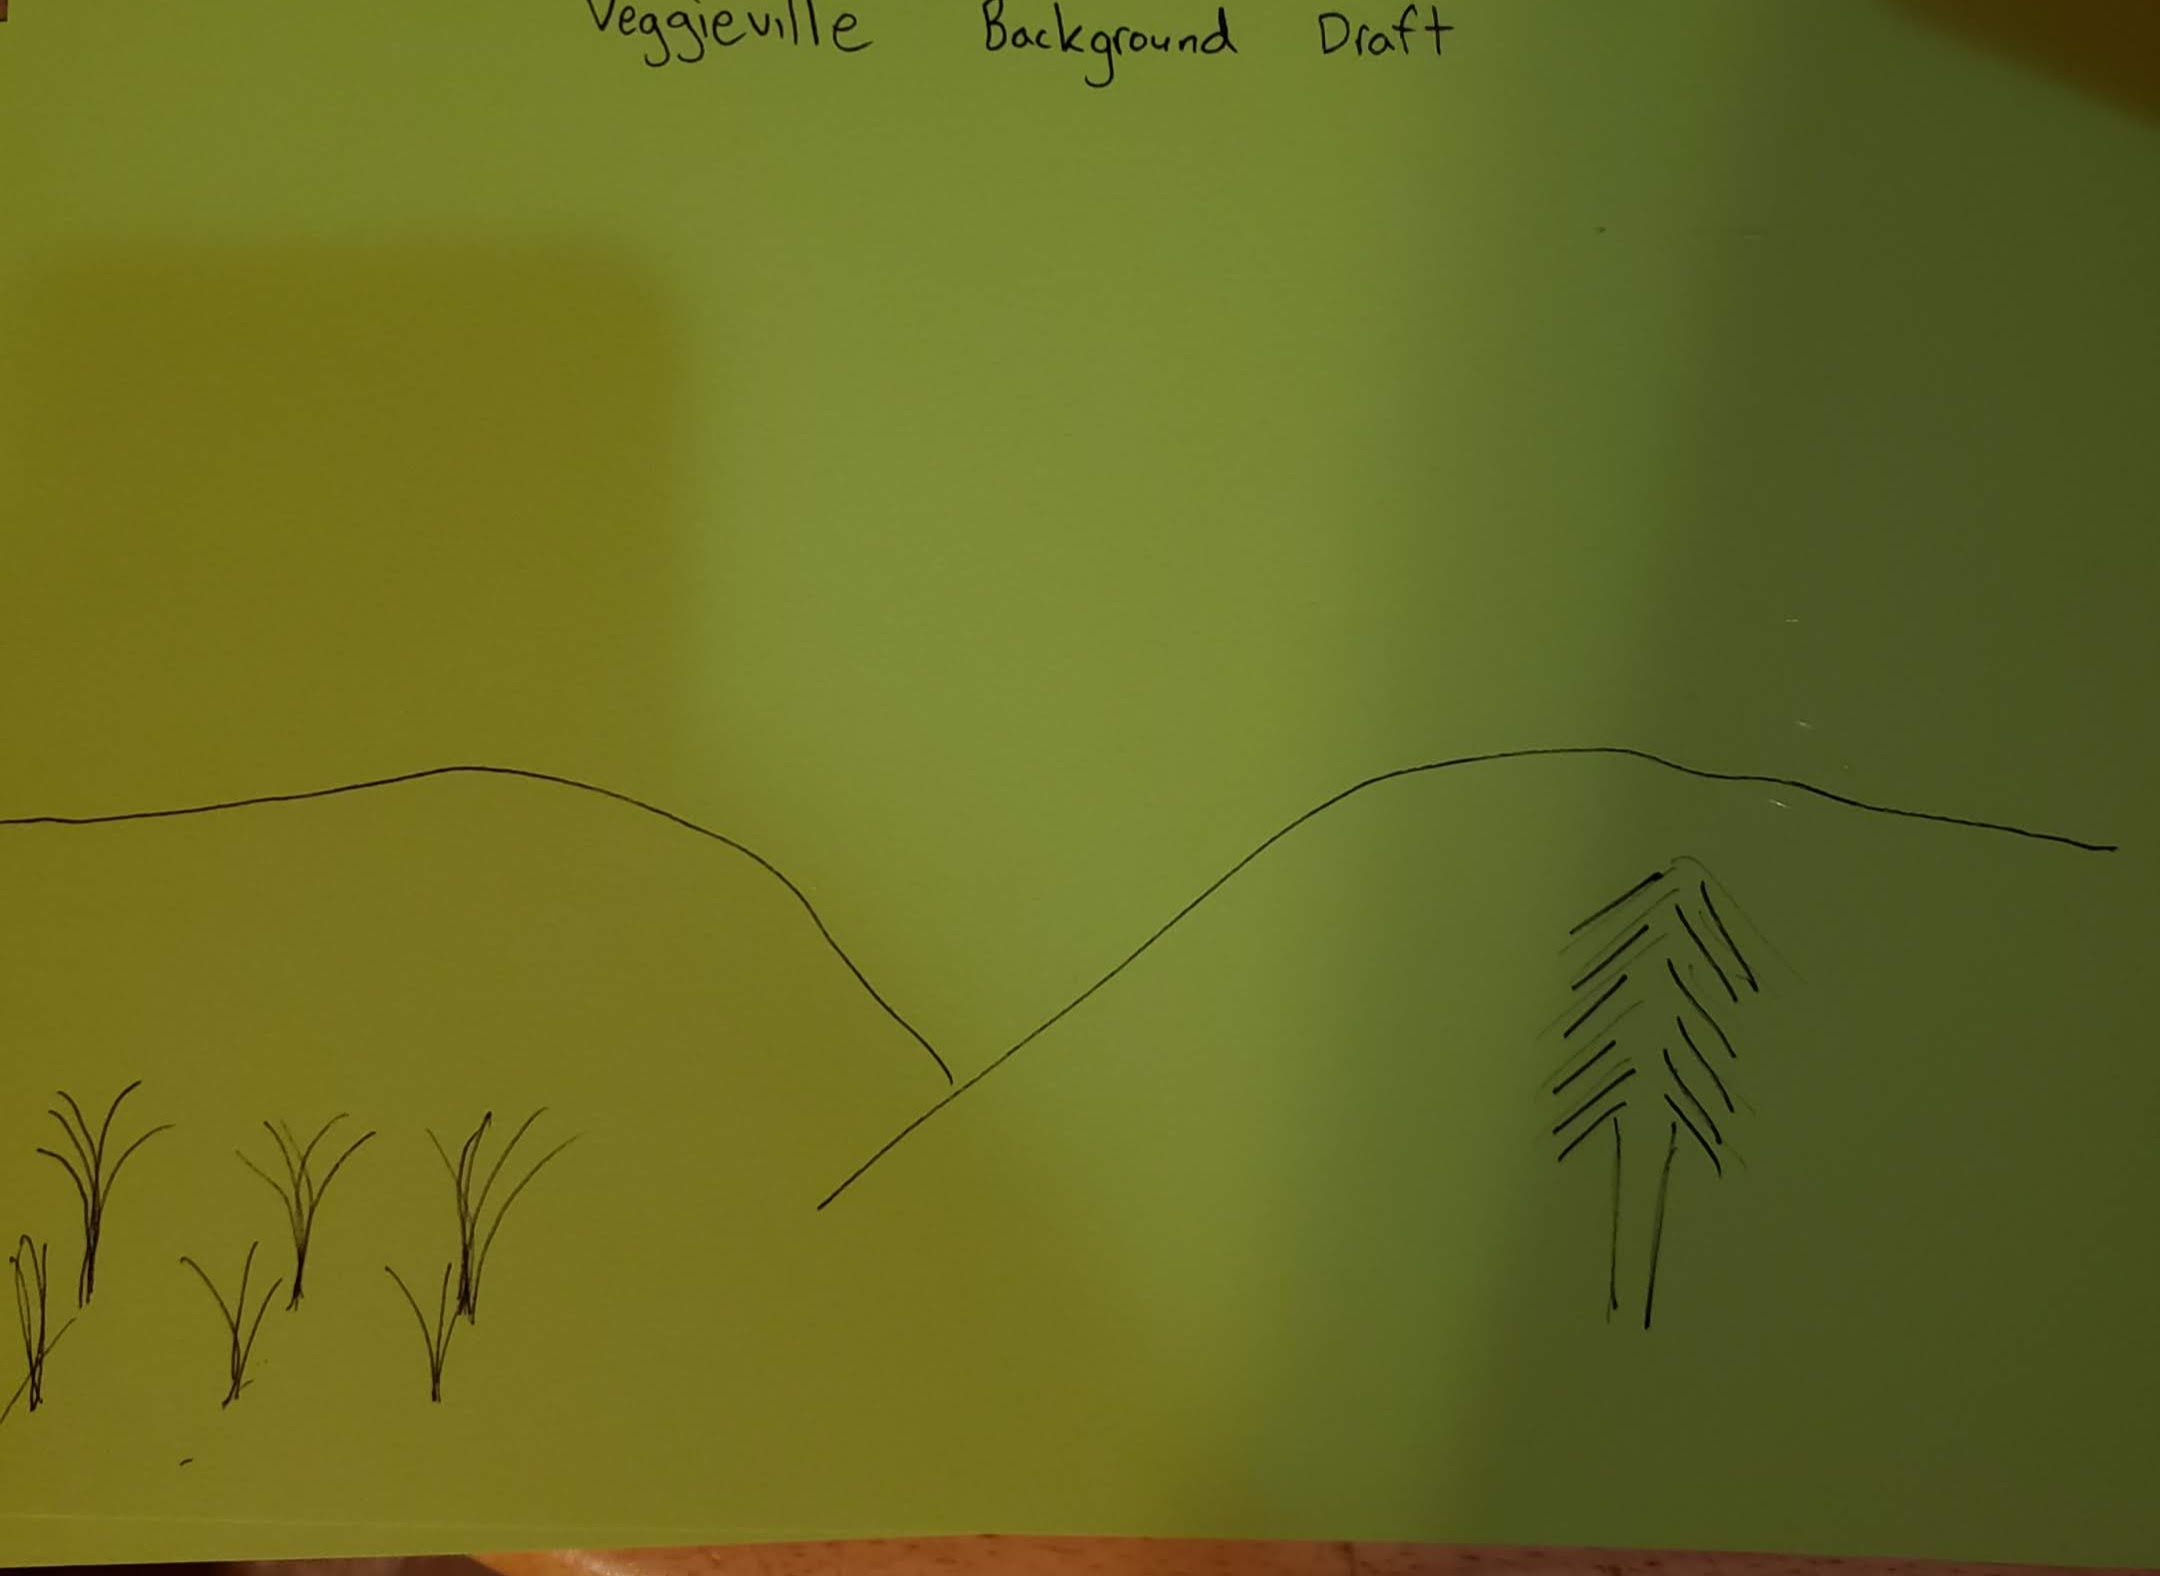 Veggieville Background Draft